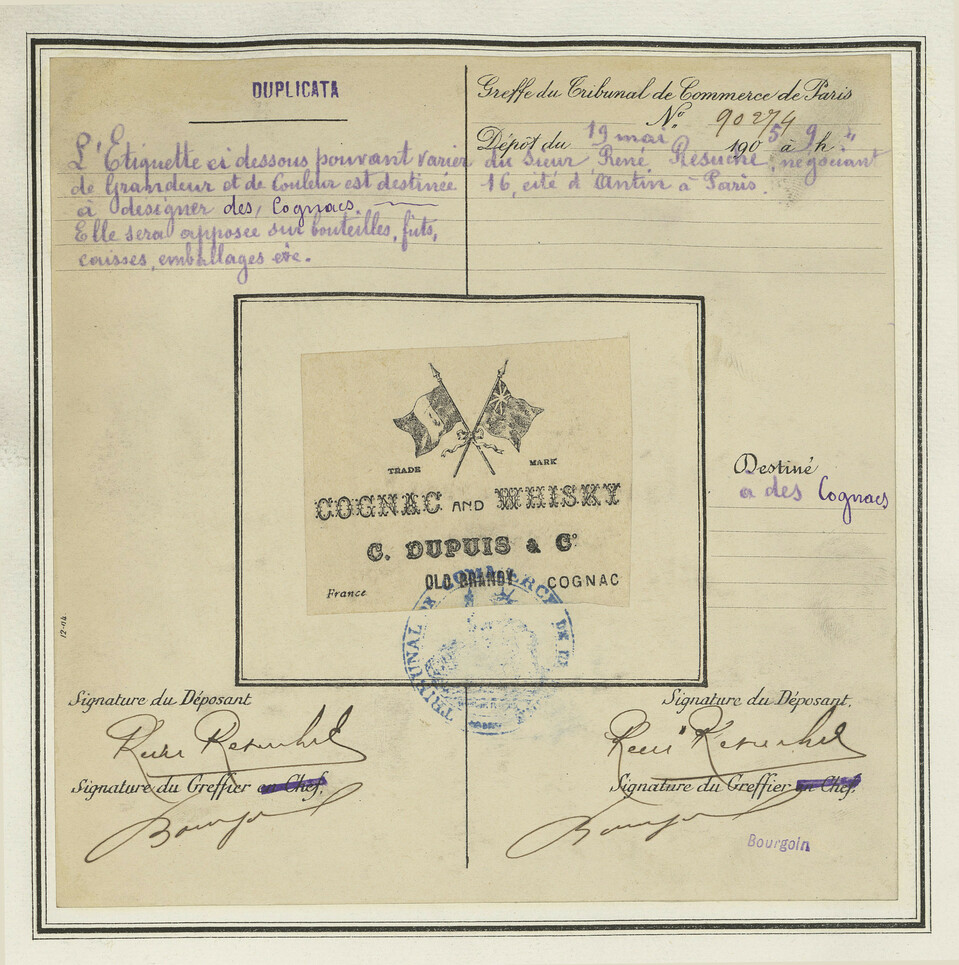 DUPLICATA
L'Etiquette ci dessous pouvant varier
de Grandeur et de Couleur est destinée
à désigner des, Cognacs.
Elle sera apposée sur bouteilles, futs,
caisses, emballages etc.
Greffe du Tribunal de Commerce de Paris
No 90274
Dépôt du 19 mai 1905 à 9 h. "
du Sieur René Resuche, négociant
16, cité d'Antin à Paris.
TRADE MARK
COGNAC AND WHISKY
C. DUPUIS & Co
OLD BRANDY COGNAC
France
TRIBUNAL DE COMMERCE DE
Destiné
à des Cognacs
12-04
Signature du Déposant
Signature du Greffier en Chef.
Signature du Déposant.
Signature du Greffier en Chef.
Bourgoin